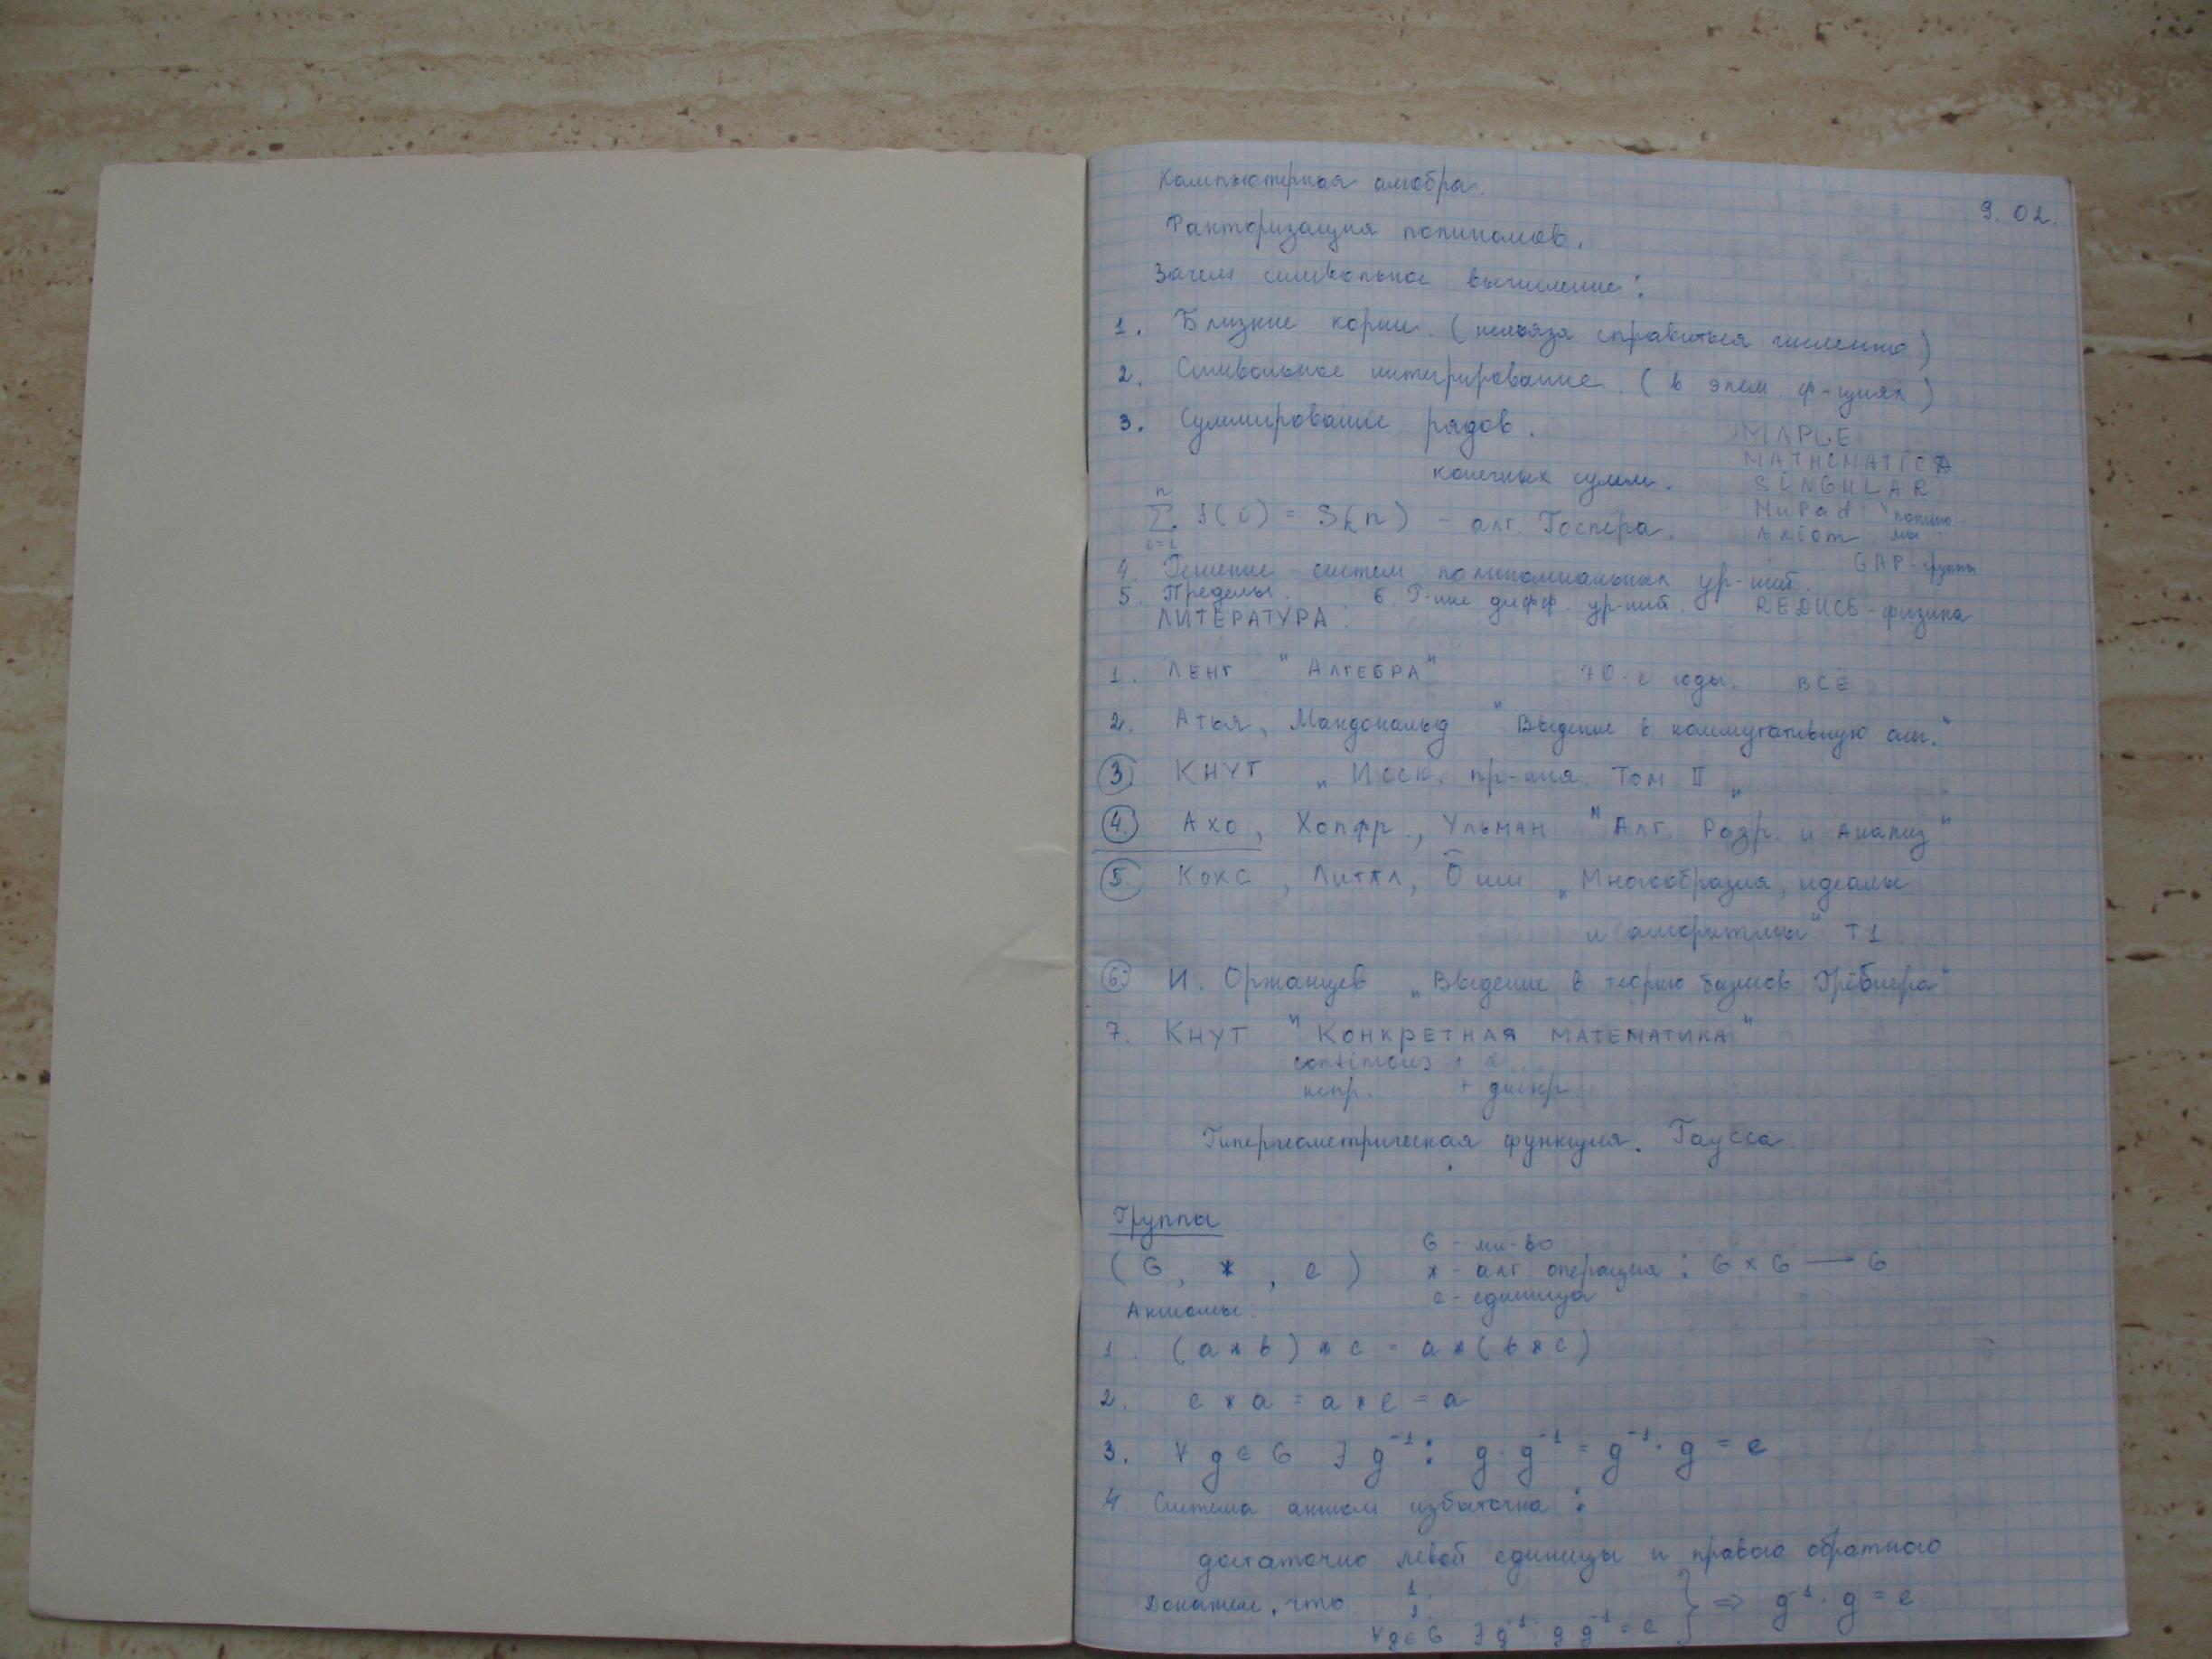 Компьютерная алгебра.
9.02.
Факторизация полиномов.
Зачем символьное вычисление:
1. Близкие корни. (нельзя справиться численно)
2. Символьное интегрирование. (в элем. ф-циях)
3. Суммирование рядов.
конечных сумм.
MAPLE
MATHEMATICA
SINGULAR
MuPad полино-
Axiom мы
GAP - группы
REDUCE - физика
n
∑ f(i) = S(n) - алг. Госпера.
i=1
4. Решение систем полиномиальных ур-ний.
5. Пределы. 6. Р-ние дифф. ур-ний.
ЛИТЕРАТУРА:
1. ЛЕНГ "АЛГЕБРА" 70-е годы. ВСЁ
2. Атья, Макдональд "Введение в коммутативную алг."
3. КНУТ "Исск. пр-ния. Том II"
4. Ахо, Хопфр., Ульман "Алг. Разр. и Анализ"
5. Кокс, Литтл, О'ши "Многообразия, идеалы
и алгоритмы" Т1.
6. И. Оржанцев "Введение в теорию базисов Грёбнера"
7. КНУТ "КОНКРЕТНАЯ МАТЕМАТИКА"
continous + d...
непр. + дискр.
Гипергеометрическая функция. Гаусса.
Группы
(G, *, e)
G - мн-во
* - алг. операция : G × G → G
e - единица
Аксиомы:
1. (a * b) * c = a * (b * c)
2. e * a = a * e = a
3. ∀ g ∈ G ∃ g⁻¹ : g · g⁻¹ = g⁻¹ · g = e
4. Система аксиом избыточна:
достаточно левой единицы и правого обратного
Докажем, что 1. } ⇒ g⁻¹ · g = e
∀ g ∈ G ∃ g⁻¹ g·g⁻¹ = e